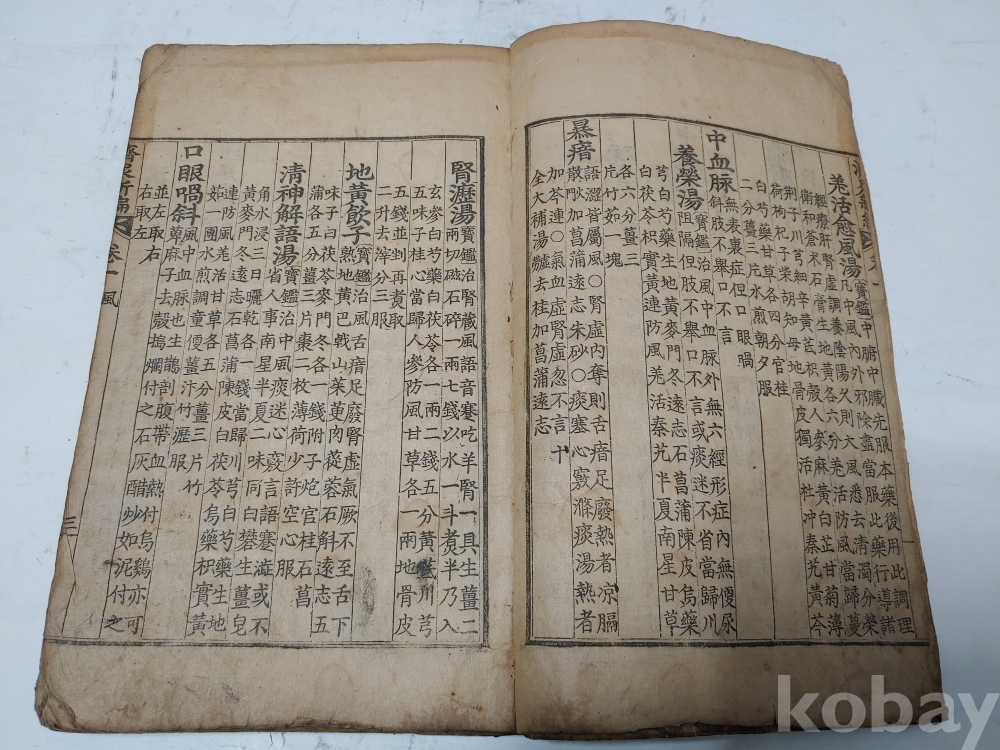 羌活愈風湯
寶鑑中腑中臟先服本藥後用此調理
凡中風內外邪除盡當服此藥行導諸
經療肝腎虛調養陰陽久則大風悉去清濁分榮
衛和蒼朮石膏生地黃各六分羌活防風當歸蔓
荊子川芎細辛黃芪枳殼人參麻黃白芷甘菊薄
荷枸杞子柴胡知母地骨皮獨活杜冲秦艽黃芩
白芍藥甘草各四分官桂
二分薑三片水煎朝夕服
中血脉
無表裏症但口眼喎
斜肢不舉口不言
養榮湯
寶鑑治中血脉外無六經形症內無便尿
阻隔但肢不舉口不言或痰迷不省當歸川
芎白芍藥生地黃麥門冬遠志石菖蒲陳皮烏藥
白茯苓枳實黃連防風羌活秦艽半夏南星甘草
各六分薑三
片竹茹一塊
暴瘖
語澀皆屬風○腎虛內奪則舌瘖足廢熱者凉膈
散加菖蒲遠志朱砂○痰塞心竅滌痰湯熱者
加芩連○氣血虛腎虛忽不言十
全大補湯去桂加菖蒲遠志
腎瀝湯
寶鑑治腎藏風語音蹇吃羊腎一具生薑二
兩切磁石碎一兩七錢以水一斗煮半乃入
玄參白芍藥白茯苓各一兩二錢五分黃芪川芎
五味子桂心當歸人參防風甘草各一兩地骨皮
五錢並剉再煑取
二升去滓分三服
地黃飮子
寶鑑治風舌瘖足廢腎虛氣厥不至舌下
熟地黃巴戟山茱萸肉蓯蓉石斛遠志五
味子白茯苓麥門冬各一錢附子炮官桂石菖
蒲各五分薑三片棗二枚薄荷少許空心服
清神解語湯
寶鑑治中風痰迷心竅言語蹇澁或不
省人事南星半夏二味同白礬生薑皂
角水浸三日曬乾各一錢當歸川芎白芍藥生地
黃麥門冬遠志石菖蒲陳皮白茯苓烏藥枳實黃
連防風羌活甘草各五分薑三片竹
茹一團水煎調童便薑汁竹瀝服
口眼喎斜
風中血脉也生鸜剖腹帶血熱付烏鷄亦可
萆麻子去殼搗爛付之石灰醋炒如泥付之
並左取右
右取左
濟衆新編 卷一 風 三
kobay